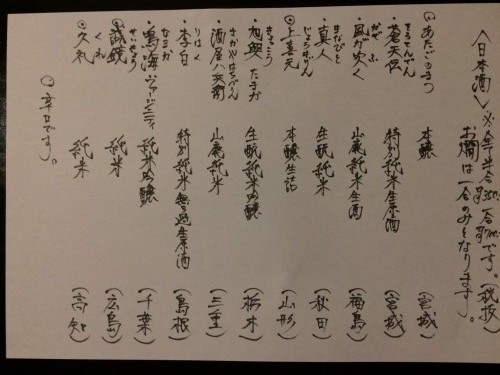 〈日本酒〉 ※全半合350 一合700です。(税抜)
お燗は一合のみとなります。
◎あたごのまつ 本醸 (宮城)
そうてんでん
・蒼天伝 特別純米生原酒 (宮城)
かぜ ふ
・風が吹く 山廃純米生酒 (福島)
まなびと
・真人 生酛純米 (秋田)
じょうきげん
◎上喜元 本醸生詰 (山形)
きょくこう
・旭興 たまか 生酛純米吟醸 (栃木)
さかやはちべえ
・酒屋八兵衛 山廃純米 (三重)
りはく
・李白 特別純米無濾過生原酒 (島根)
なるか
・鳴海 ヴァージニティ 純米吟醸 (千葉)
せいきょう
◎誠鏡 純米 (広島)
くれ
◎久礼 純米 (高知)
◎辛口です。